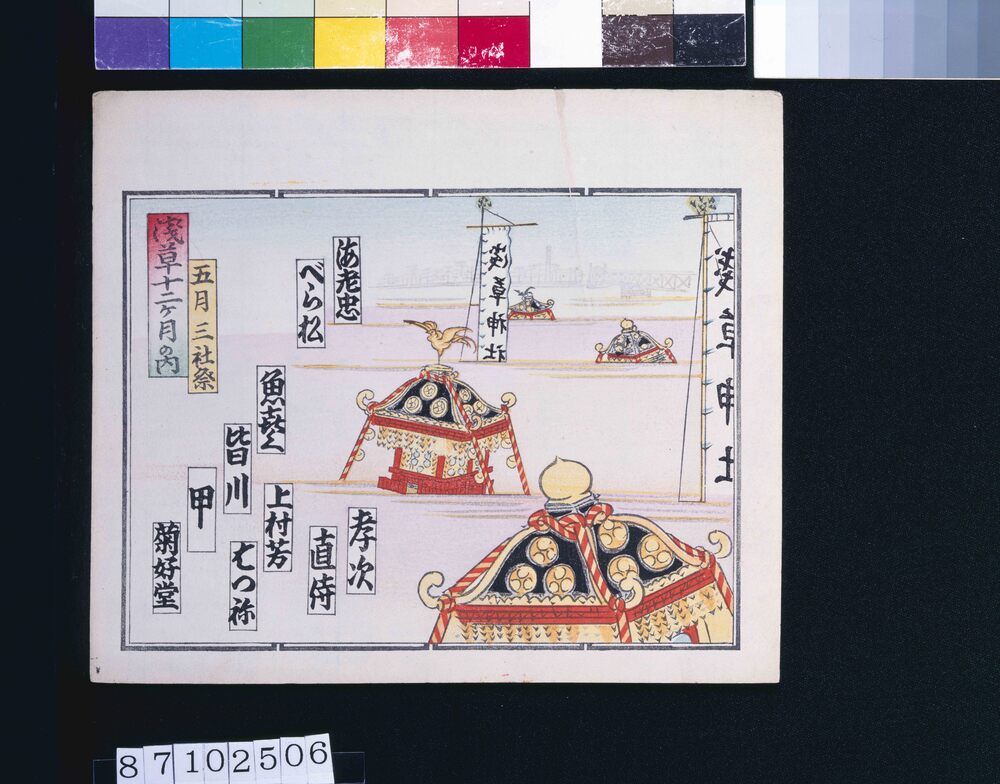 浅草神社
浅草神社
浅草十二ヶ月の内
五月 三社祭
海老忠
べら松
魚㐂久
皆川
甲
菊好堂
孝次
直侍
上村芳
七つ祢
87102506